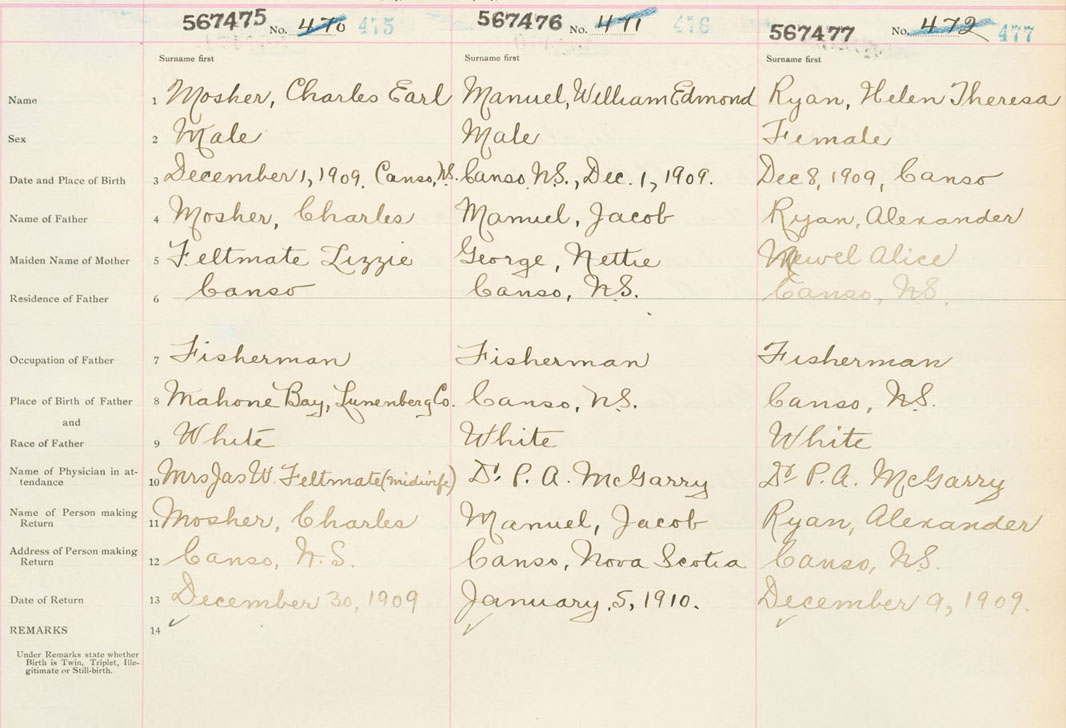 567475 No. 470 475 567476 No. 471 476 567477 No. 472 477
Surname first Surname first Surname first
Name 1 Mosher, Charles Earl Manuel, William Edmond Ryan, Helen Theresa
Sex 2 Male Male Female
Date and Place of Birth 3 December 1, 1909, Canso, N.S. Canso, N.S., Dec. 1, 1909. Dec 8, 1909, Canso
Name of Father 4 Mosher, Charles Manuel, Jacob Ryan, Alexander
Maiden Name of Mother 5 Feltmate Lizzie George, Nettie Alice
Residence of Father 6 Canso Canso, N.S. Canso, N.S.
Occupation of Father 7 Fisherman Fisherman Fisherman
Place of Birth of Father 8 Mahone Bay, Lunenberg Co. Canso, N.S. Canso, N.S.
and
Race of Father 9 White White White
Name of Physician in at-
tendance 10 Mrs Jas W. Feltmate (midwife) Dr P. A. McGarry Dr P. A. McGarry
Name of Person making
Return 11 Mosher, Charles Manuel, Jacob Ryan, Alexander
Address of Person making
Return 12 Canso, N.S. Canso, Nova Scotia Canso, N.S.
Date of Return 13 December 30, 1909 January, 5, 1910. December 9, 1909.
REMARKS 14
Under Remarks state whether
Birth is Twin, Triplet, Ille-
gitimate or Still-birth.